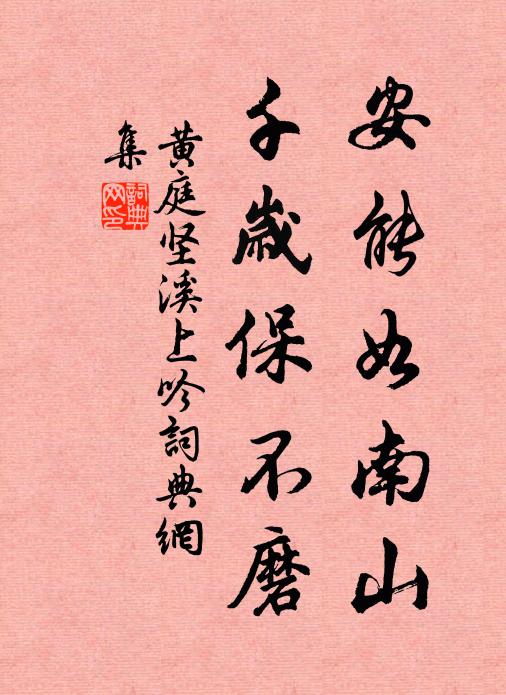 安能如南山
千歲保不磨
黄庭坚溪上吟詞典網
集
詞典網印